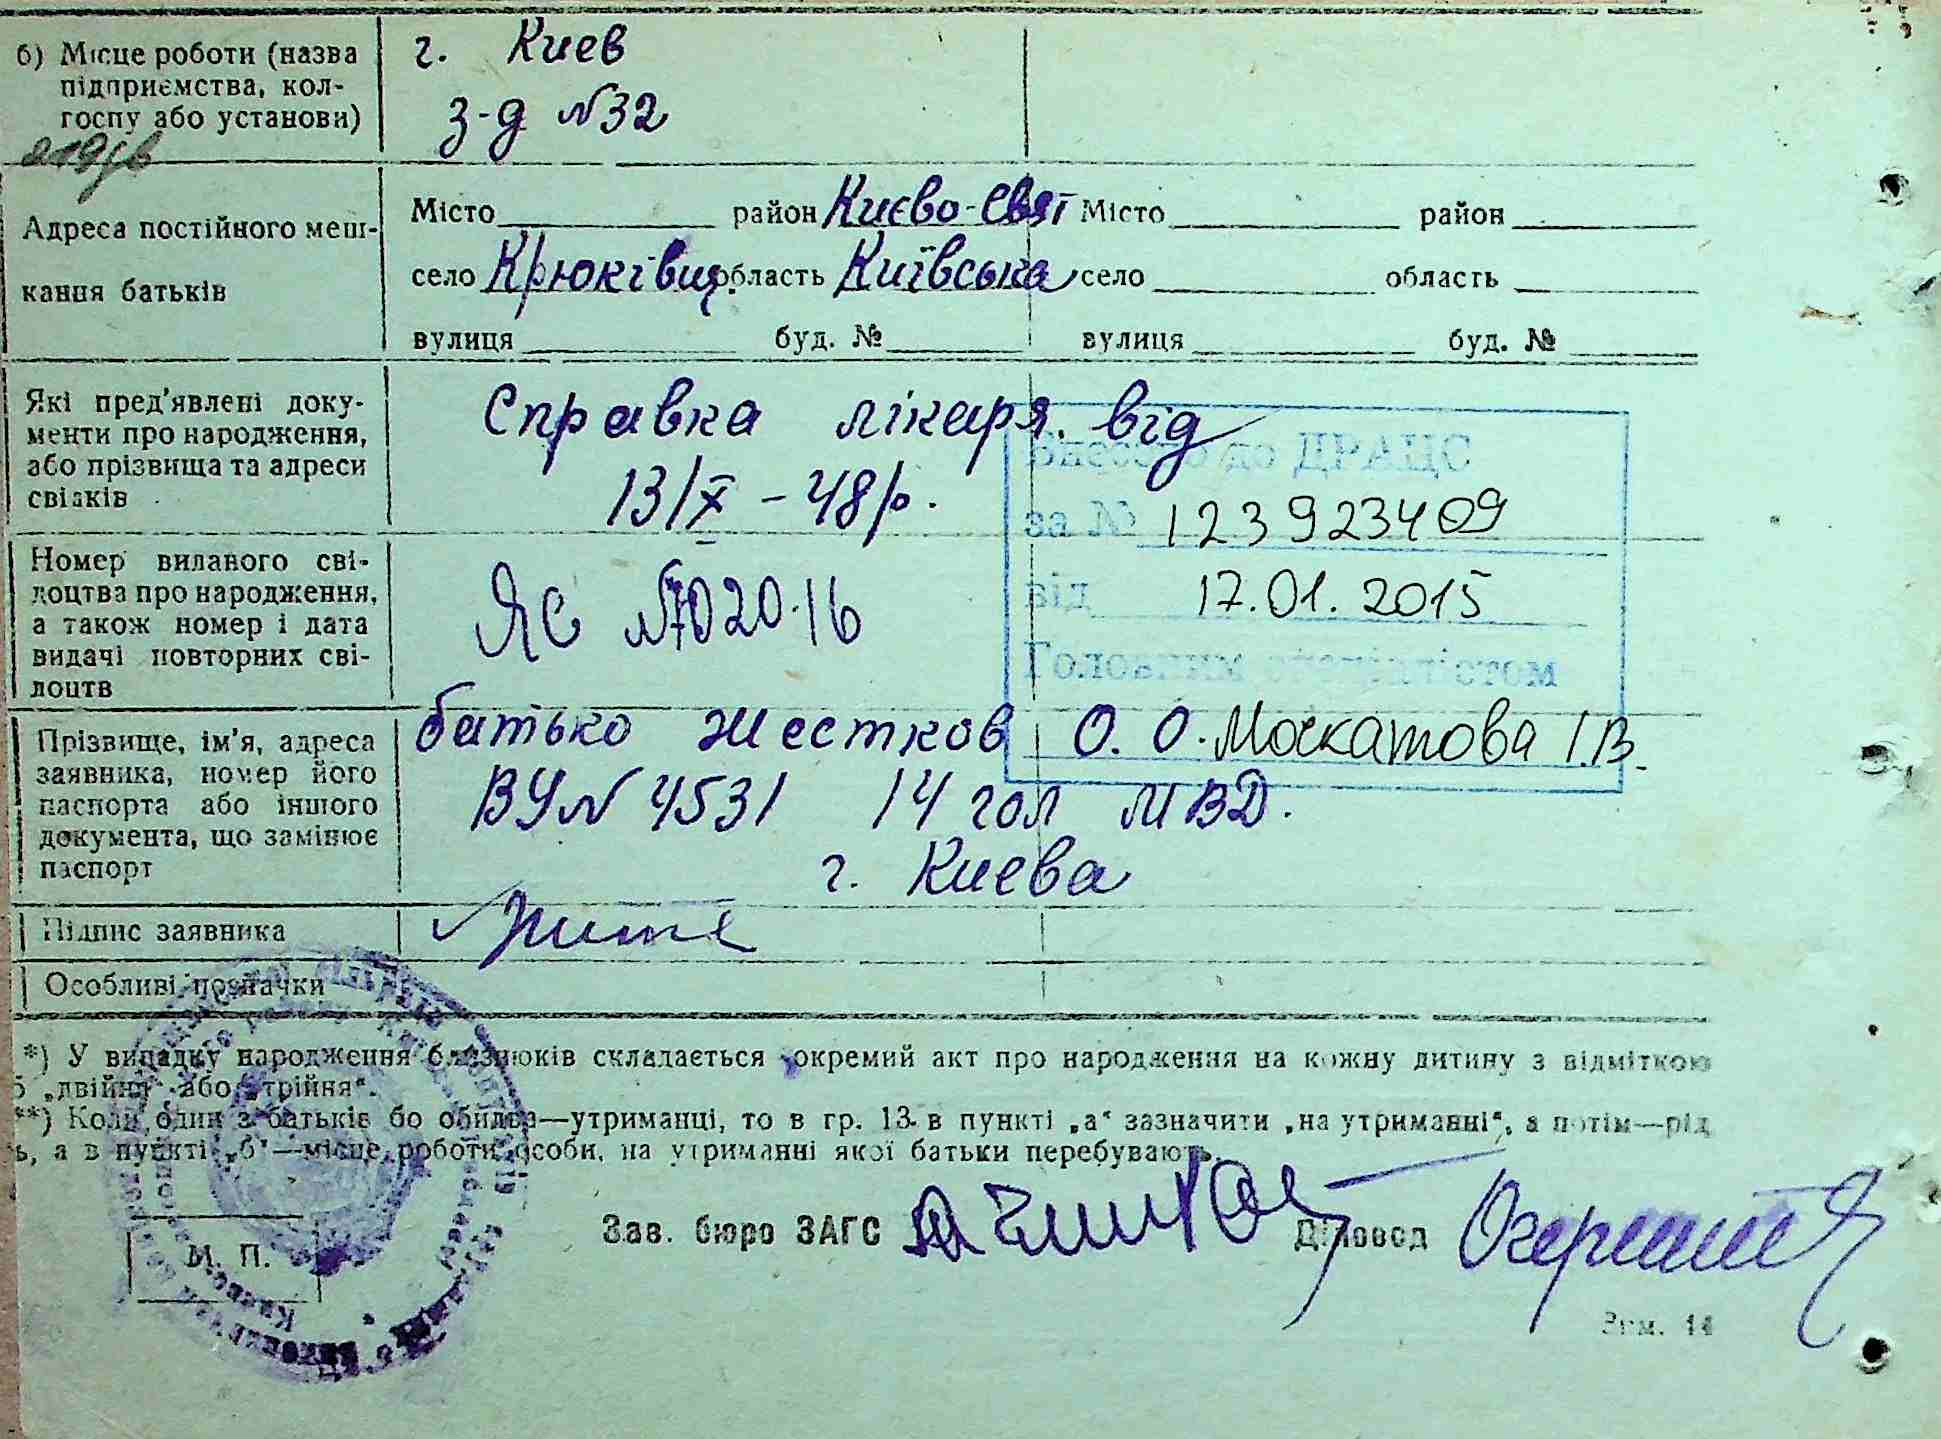 б) Місце роботи (назва
підприємства, кол-
госпу або установи)
г. Киев
з-д №32
Адреса постійного меш-
кання батьків
Місто район Києво-Свят Місто район
село Крюківщ. область Київська село область
вулиця буд. № вулиця буд. №
Які пред'явлені доку-
менти про народження,
або прізвища та адреси
свідків
Справка лікаря від
13/X – 48 р.
Внесено до ДРАЦС
за № 123923409
від 17.01.2015
Головним спеціалістом
О. О. Москатова І.В.
Номер виданого сві-
доцтва про народження,
а також номер і дата
видачі повторних сві-
доцтв
ЯС №
Прізвище, ім'я, адреса
заявника, номер його
паспорта або іншого
документа, що замінює
паспорт
батько Жестков
ВУ № 4531 14 гол МВД.
г. Киева
Підпис заявника
Особливі позначки
*) У випадку народження близнюків складається окремий акт про народження на кожну дитину з відміткою
„двійня" або „трійня".
**) Коли один з батьків бо обидва—утриманці, то в гр. 13 в пункті „а" зазначити „на утриманні", а потім—рід
ь, а в пункті „б"—місце роботи особи, на утриманні якої батьки перебувають.
Зав. бюро ЗАГС Діловод
М. П.
Зам. 14